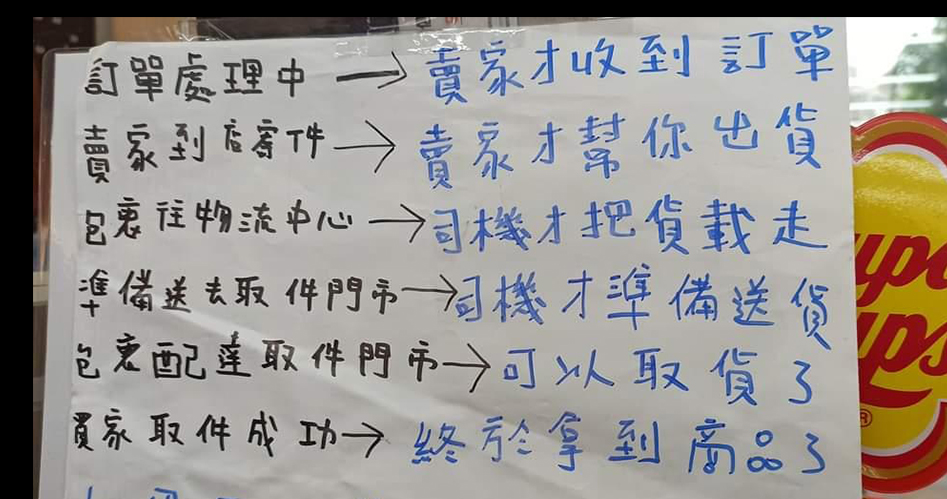 訂單處理中 → 賣家才收到訂單
賣家到店寄件 → 賣家才幫你出貨
包裹往物流中心 → 司機才把貨載走
準備送去取件門市 → 司機才準備送貨
包裹配達取件門市 → 可以取貨了
買家取件成功 → 終於拿到商品了